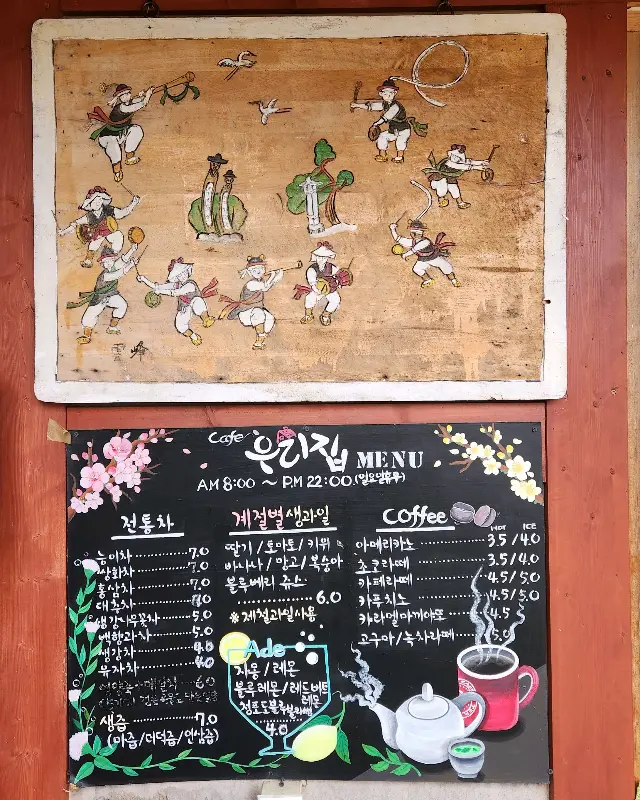 Cafe 우리집 MENU
AM 8:00 ~ PM 22:00 (일요일휴무)
전통차
능이차 7.0
쌍화차 7.0
홍삼차 7.0
대추차 7.0
생강나무꽃차 5.0
백향과차 5.0
생강차 4.0
유자차 4.0
6.0
생즙 7.0
(마즙/더덕즙/인삼즙)
계절별생과일
딸기/토마토/키위
바나나/망고/복숭아
블루베리 쥬스
6.0
※제철과일사용
Ade
자몽/레몬
블루레몬/레드비트레몬
청포도블루
4.0
Coffee
HOT ICE
아메리카노 3.5/4.0
초코라떼 3.5/4.0
카페라떼 4.5/5.0
카푸치노 4.5/5.0
카라멜마끼야또 4.5
고구마/녹차라떼 5.0